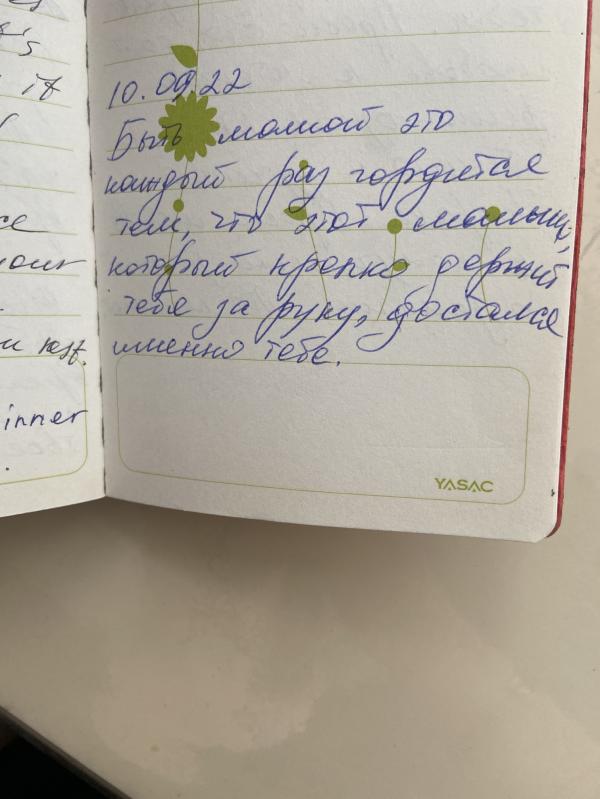 it
your
rest.
inner
10.09.22
Быть мамой это
каждый раз гордится
тем, что этот малыш,
который крепко держит
тебя за руку, достался
именно тебе.
YASAC